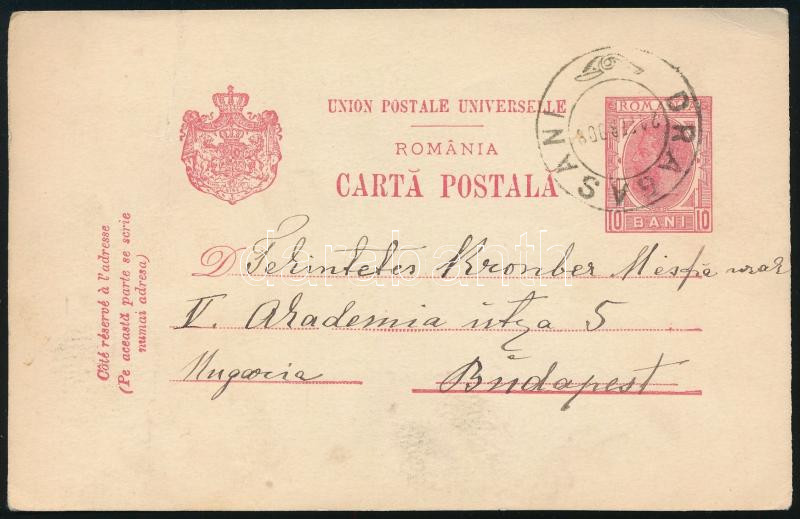 UNION POSTALE UNIVERSELLE
ROMÂNIA
CARTĂ POSTALĂ
ROMANIA
10 BANI 10
DRAGASANI
Côté réservé à l'adresse
(Pe această parte se scrie
numai adresa)
D Tekintetes Kronber
V. Akademia utza 5
Ungaria Budapest
darabanth